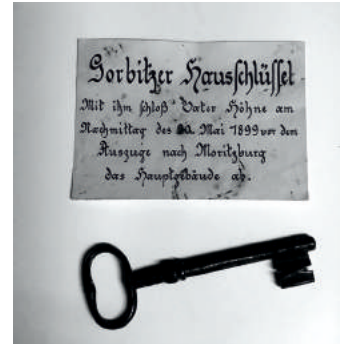 Gorbitzer Hausschlüssel
Mit ihm schloß Vater Höhne am
Nachmittag des 20. Mai 1899 vor dem
Auszuge nach Moritzburg
das Hauptgebäude ab.